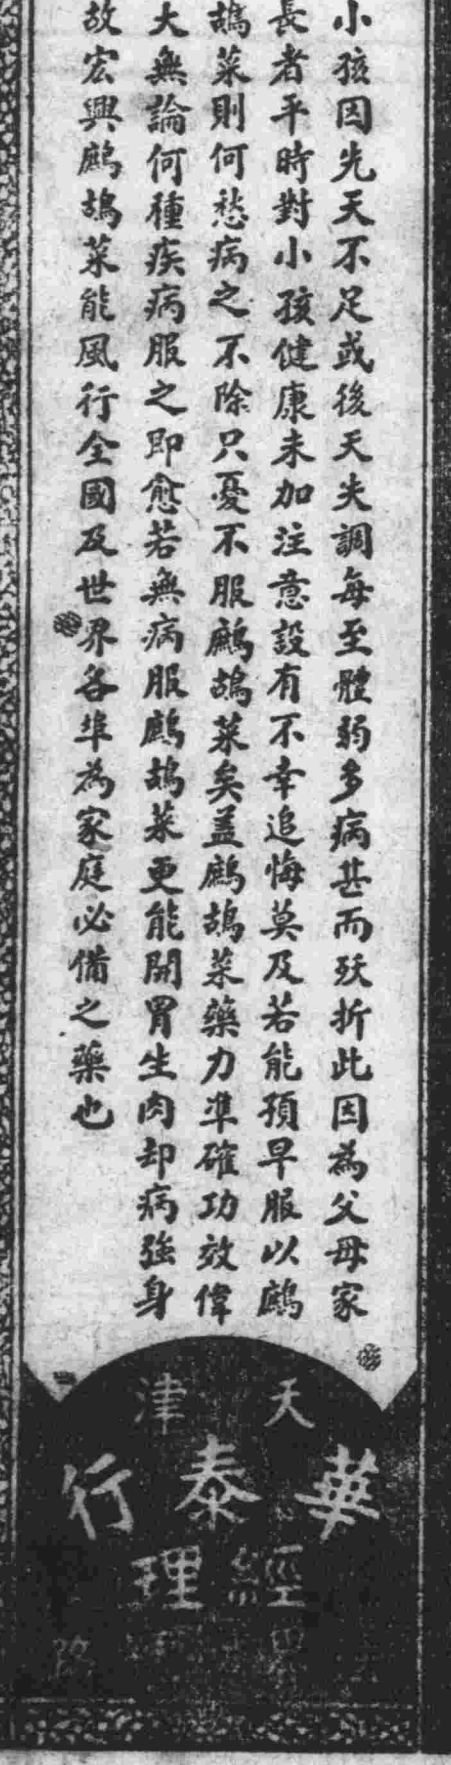 小孩因先天不足或後天失調每至體弱多病甚而殀折此因為父母家
長者平時對小孩健康未加注意設有不幸追悔莫及若能預早服以鷓
鴣菜則何愁病之不除只憂不服鷓鴣菜矣盖鷓鴣菜藥力準確功效偉
大無論何種疾病服之即愈若無病服鷓鴣菜更能開胃生肉却病強身
故宏興鷓鴣菜能風行全國及世界各埠為家庭必備之藥也
天津
華泰行
經理